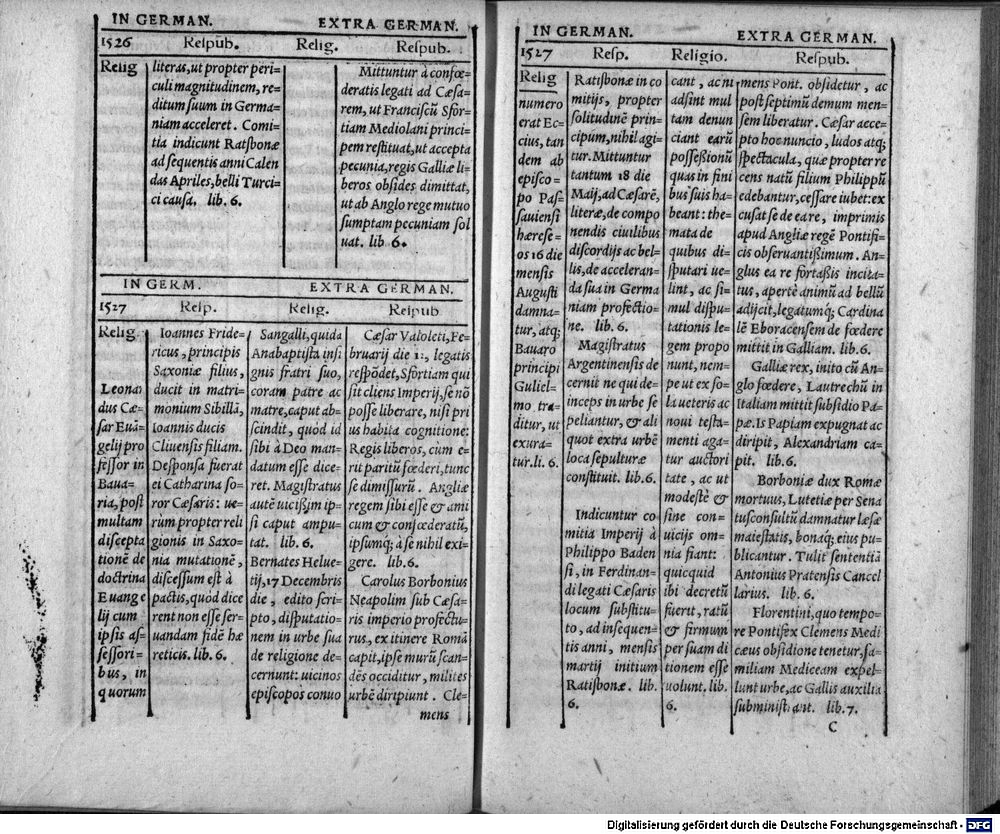 IN GERMAN. EXTRA GERMAN.
1526 Reſpūb. Relig. Reſpub.
Relig
literas, ut propter peri-
culi magnitudinem, re-
ditum ſuum in Germa-
niam acceleret. Comi-
tia indicunt Ratſbonæ
ad ſequentis anni Calen
das Apriles, belli Turci-
ci cauſa. lib. 6.
Mittuntur à confœ-
deratis legati ad Cæſa-
rem, ut Franciſcū Sfor-
tiam Mediolani princi-
pem reſtituat, ut accepta
pecunia, regis Galliæ li-
beros obſides dimittat,
ut ab Anglo rege mutuo
ſumptam pecuniam ſol
uat. lib. 6.
IN GERM. EXTRA GERMAN.
1527 Reſp. Relig. Reſpub
Relig
Leonar
dus Cæ-
ſar Euā-
gelij pro
feſſor in
Baua-
ria, poſt
multam
diſcepta
tionē de
doctrina
Euange
lij cum
ipſis aſ-
ſeſſori-
bus, in
quorum
Ioannes Fride-
ricus, principis
Saxoniæ filius,
ducit in matri-
monium Sibillā,
Ioannis ducis
Cliuenſis filiam.
Deſponſa fuerat
ei Catharina ſo-
ror Cæſaris: ue-
rum propter reli
gionis in Saxo-
nia mutationē,
diſceſſum eſt à
pactis, quòd dice
rent non eſſe ſer-
uandam fidē hæ
reticis. lib. 6.
Sangalli, quida
Anabaptiſta inſi
gnis fratri ſuo,
coram patre ac
matre, caput ab-
ſcindit, quod id
ſibi à Deo man-
datum eſſe dice-
ret. Magiſtratus
autē uiciſsim ip-
ſi caput ampu-
tat. lib. 6.
Bernates Helue-
tij, 17 Decembris
die, edito ſcri-
pto, diſputatio-
nem in urbe ſua
de religione de-
cernunt: uicinos
epiſcopos conuo
Cæſar Valoleti, Fe-
bruarij die 12, legatis
reſpōdet, Sfortiam qui
ſit cliens Imperij, ſe nō
poſſe liberare, niſi pri
us habita cognitione:
Regis liberos, cum e-
rit paritū fœderi, tunc
ſe dimiſſurū. Angliæ
regem ſibi eſſe & ami
cum & confœderatū,
ipſumq; à ſe nihil exi-
gere. lib. 6.
Carolus Borbonius
Neapolim ſub Cæſa-
ris imperio profectu-
rus, ex itinere Romā
capit, ipſe murū ſcan-
dēs occiditur, milites
urbē diripiunt. Cle-
mens
IN GERMAN. EXTRA GERMAN.
1527 Reſp. Religio. Reſpub.
Relig
numero
erat Ec-
cius, tan
dem ab
epiſco-
po Paſ-
ſauienſi
hæreſe-
os 16 die
menſis
Auguſti
damna-
tur, atq;
Bauaro
principi
Guliel-
mo tra-
ditur, ut
exura-
tur. li. 6.
Ratiſbonæ in co
mitijs, propter
ſolitudinē prin-
cipum, nihil agi-
tur. Mittuntur
tantum 18 die
Maij, ad Cæſarē,
literæ, de compo
nendis ciuilibus
diſcordijs ac bel-
lis, de acceleran-
da ſua in Germa
niam profectio-
ne. lib. 6.
Magiſtratus
Argentinenſis de
cernit ne qui de-
inceps in urbe ſe
peliantur, & ali
quot extra urbē
loca ſepulturæ
conſtituit. lib. 6.
Indicuntur co
mitia Imperij à
Philippo Baden
ſi, in Ferdinan-
di legati Cæſaris
locum ſubſtitu-
to, ad inſequen-
tis anni, menſis
martij initium
Ratiſbonæ. lib.
6.
cant, ac ni
adſint mul
tam denun
ciant earū
poſſeßionū
quas in fini
bus ſuis ha-
beant: the-
mata de
quibus di-
ſputari ue-
lint, ac ſi-
mul diſpu-
tationis le-
gem propo
nunt, nem-
pe ut ex ſo-
la ueteris ac
noui teſta-
menti aga-
tur auctori
tate, ac ut
modeſtè &
ſine con-
uicijs om-
nia fiant:
quicquid
ibi decretū
fuerit, ratū
& firmum
per ſuam di
tionem eſſe
uolunt. lib.
6.
mens Pont. obſidetur, ac
poſt ſeptimū demum men-
ſem liberatur. Cæſar acce-
pto hoc nuncio, ludos atq;
ſpectacula, quæ propter re
cens natū filium Philippū
edebantur, ceſſare iubet: ex
cuſat ſe de ea re, imprimis
apud Angliæ regē Pontifi-
cis obſeruantißimum. An-
glus ea re fortaßis incita-
tus, apertè animū ad bellū
adijcit, legatumq; Cardina
lē Eboracenſem de fœdere
mittit in Galliam. lib. 6.
Galliæ rex, inito cū An-
glo fœdere, Lautrechū in
Italiam mittit ſubſidio Pa-
pæ. Is Papiam expugnat ac
diripit, Alexandriam ca-
pit. lib. 6.
Borboniæ dux Romæ
mortuus, Lutetiæ per Sena
tuſconſultū damnatur læſæ
maieſtatis, bonaq; eius pu-
blicantur. Tulit ſententiā
Antonius Pratenſis Cancel
larius. lib. 6.
Florentini, quo tempo-
re Pontifex Clemens Medi
cæus obſidione tenetur, fa-
miliam Mediceam expel-
lunt urbe, ac Gallis auxilia
ſubminiſtrant. lib. 7.
C
Digitalisierung gefördert durch die Deutsche Forschungsgemeinschaft - DFG